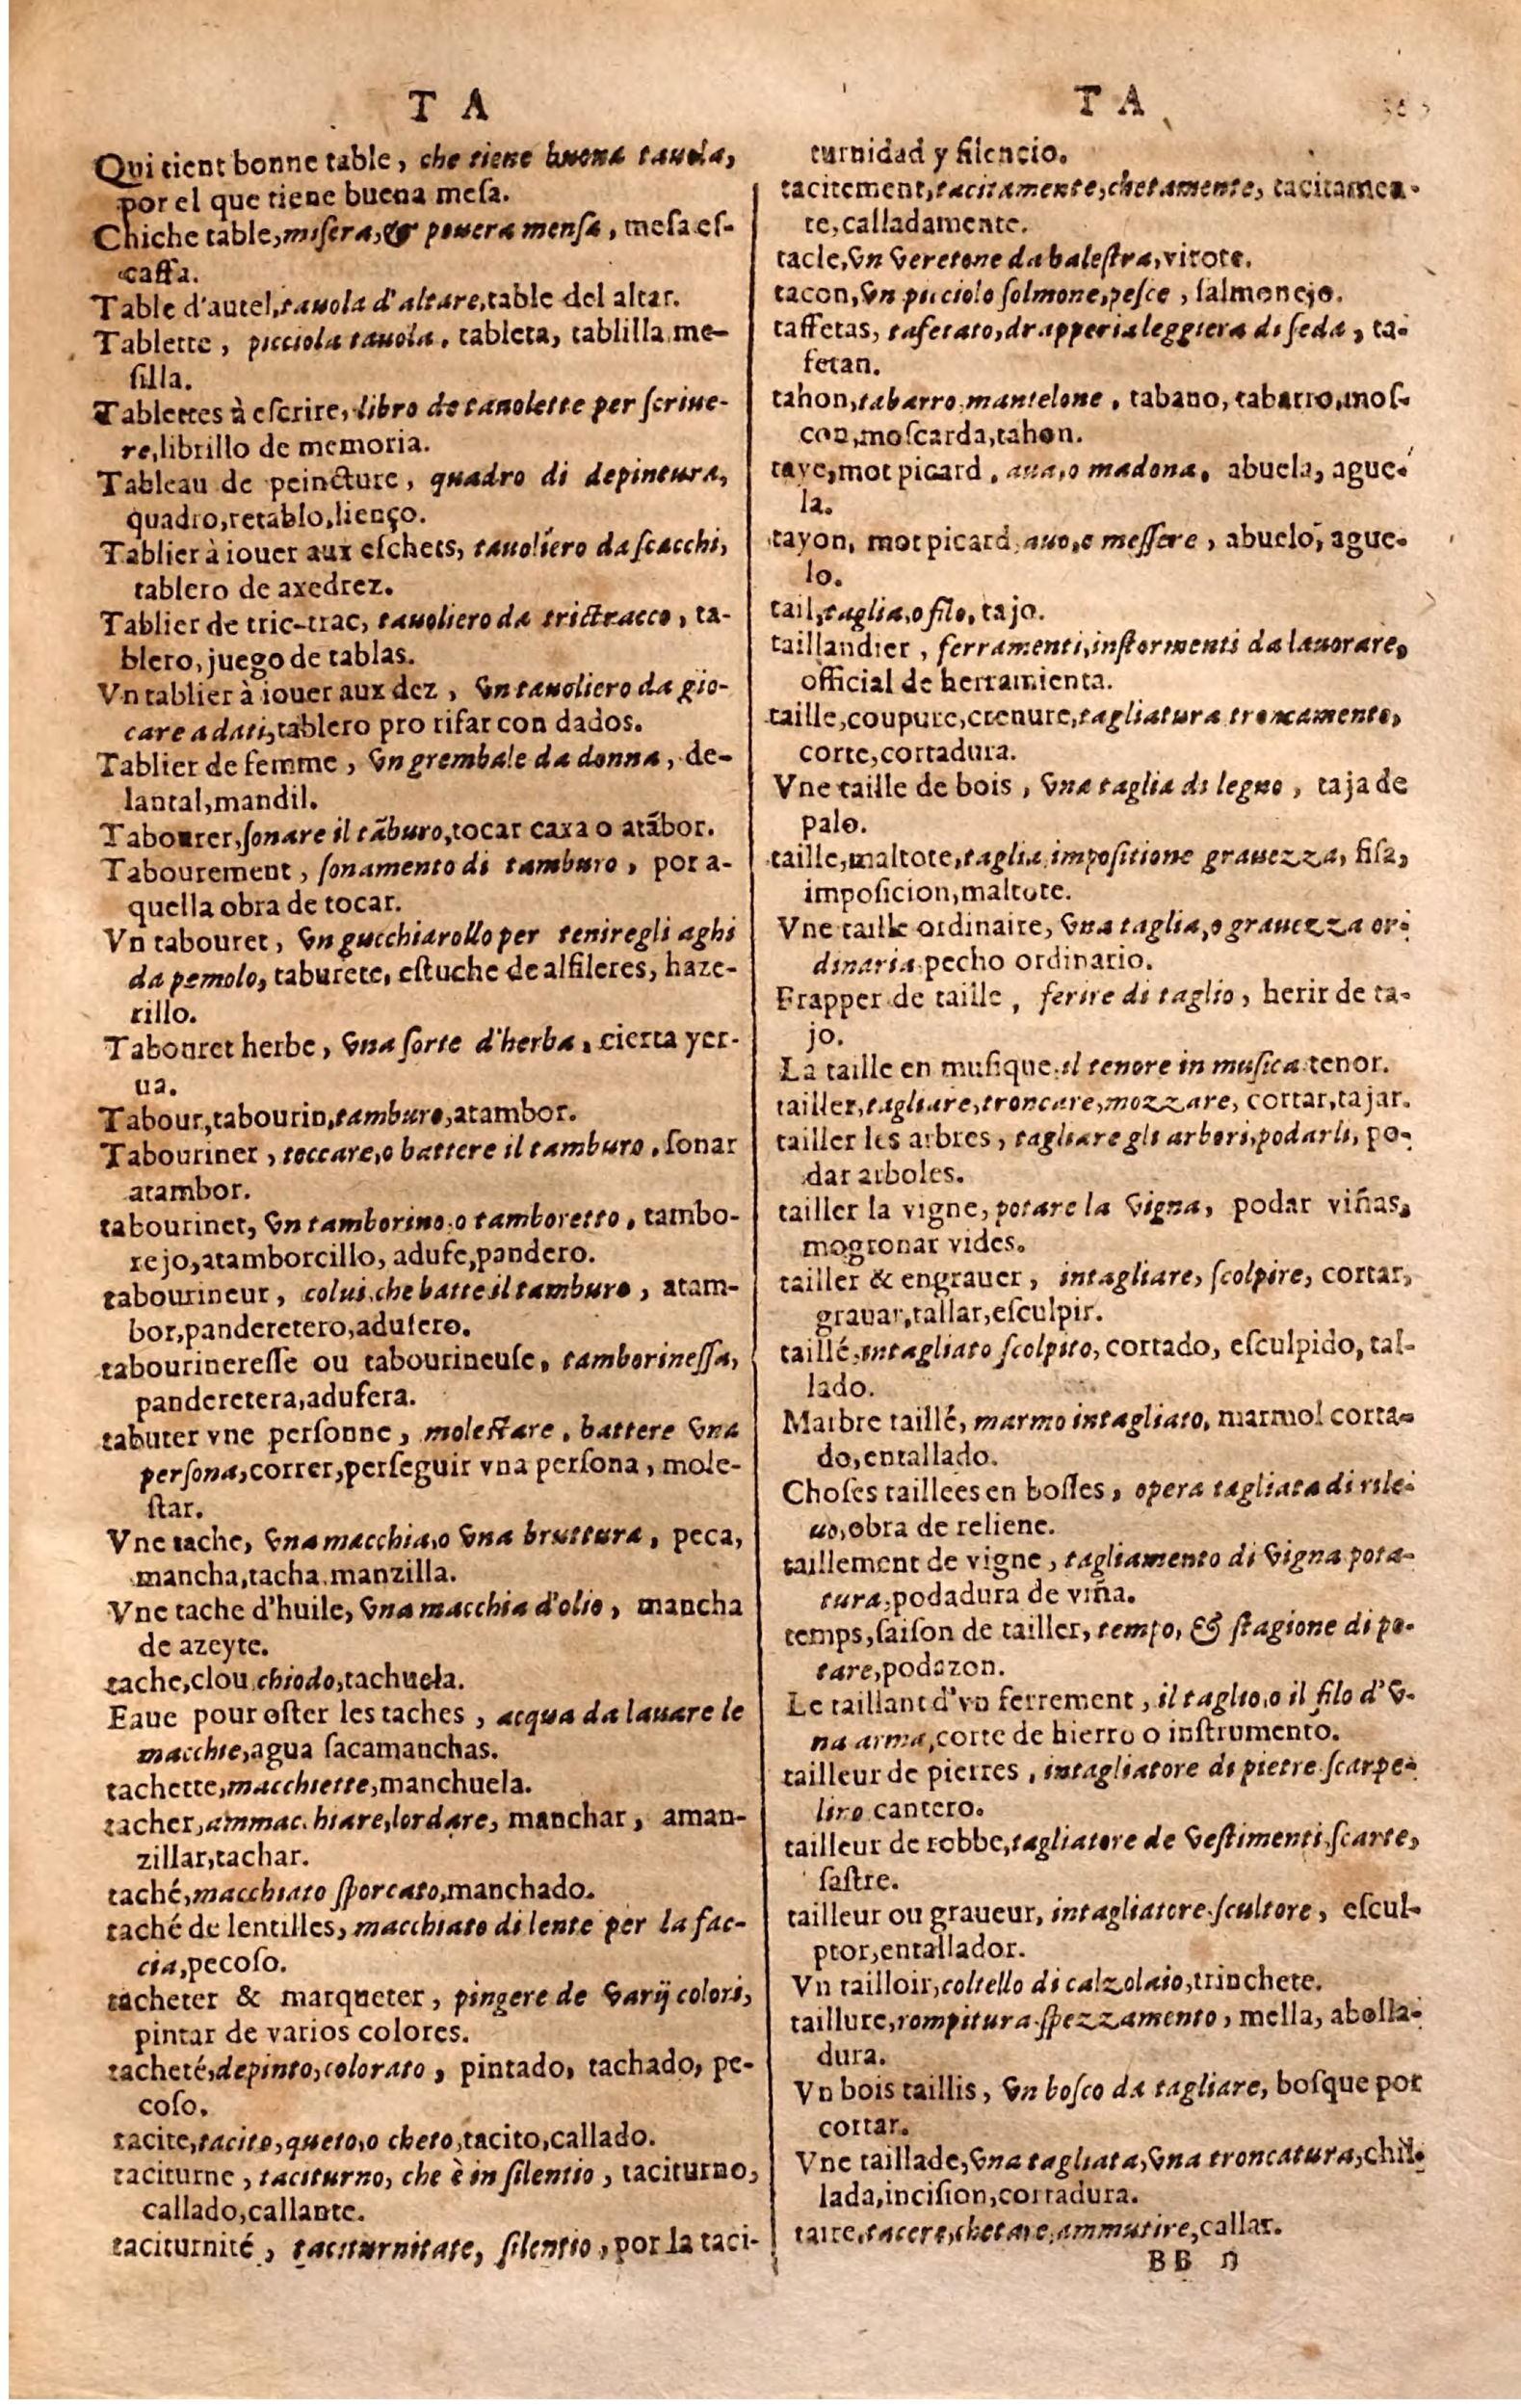 T A
Qui tient bonne table, che tiene buona tauola,
por el que tiene buena meſa.
Chiche table, miſera, & pouera menſa, meſa eſ-
caſſa.
Table d'autel, tauola d'altare, table del altar.
Tablette, picciola tauola, tableta, tablilla, me-
ſilla.
Tablettes à eſcrire, libro de tauolette per ſcriue-
re, librillo de memoria.
Tableau de peincture, quadro di depintura,
quadro, retablo, lienço.
Tablier à iouer aux eſchets, tauoliero da ſcacchi,
tablero de axedrez.
Tablier de tric-trac, tauoliero da trictracco, ta-
blero, juego de tablas.
Vn tablier à iouer aux dez, vn tauoliero da gio-
care a dati, tablero pro rifar con dados.
Tablier de femme, vn grembale da donna, de-
lantal, mandil.
Tabourer, ſonare il tãburo, tocar caxa o atãbor.
Tabourement, ſonamento di tamburo, por a-
quella obra de tocar.
Vn tabouret, vn gucchiarollo per tenire gli aghi
da pemolo, taburete, eſtuche de alfileres, haze-
rillo.
Tabouret herbe, vna ſorte d'herba, cierta yer-
ua.
Tabour, tabourin, tamburo, atambor.
Tabouriner, toccare, o battere il tamburo, ſonar
atambor.
tabourinet, vn tamborino, o tamboretto, tambo-
rejo, atamborcillo, adufe, pandero.
tabourineur, colui che batte il tamburo, atam-
bor, panderetero, adufero.
tabourinereſſe ou tabourineuſe, tamborineſſa,
panderetera, adufera.
tabuter vne perſonne, moleſtare, battere vna
perſona, correr, perſeguir vna perſona, mole-
ſtar.
Vne tache, vna macchia, o vna bruttura, peca,
mancha, tacha, manzilla.
Vne tache d'huile, vna macchia d'olio, mancha
de azeyte.
tache, clou, chiodo, tachuela.
Eaue pour oſter les taches, acqua da lauare le
macchie, agua ſacamanchas.
tachette, macchiette, manchuela.
tacher, ammacchiare, lordare, manchar, aman-
zillar, tachar.
taché, macchiato ſporcato, manchado.
taché de lentilles, macchiato di lente per la fac-
cia, pecoſo.
tacheter & marqueter, pingere de varij colori,
pintar de varios colores.
tacheté, depinto, colorato, pintado, tachado, pe-
coſo.
tacite, tacito, queto, o cheto, tacito, callado.
taciturne, taciturno, che è in ſilentio, taciturno,
callado, callante.
taciturnité, taciturnitate, ſilentio, por la taci-
T A
turnidad y ſilencio.
tacitement, tacitamente, chetamente, tacitamen-
te, calladamente.
tacle, vn veretone da baleſtra, virote.
tacon, vn picciolo ſolmone, peſce, ſalmonejo.
taffetas, tafetato, drapperia leggiera di ſeda, ta-
fetan.
tahon, tabarro, mantelone, tabano, tabarro, moſ-
con, moſcarda, tahon.
taye, mot picard, aua, o madona, abuela, ague-
la.
tayon, mot picard, auo, o meſſere, abuelo, ague-
lo.
tail, taglia, o filo, tajo.
taillandier, ferramenti, inſtormenti da lauorare,
official de herramienta.
taille, coupure, crenure, tagliatura troncamento,
corte, cortadura.
Vne taille de bois, vna taglia di legno, taja de
palo.
taille, maltote, taglia, impoſitione grauezza, ſiſa,
impoſicion, maltote.
Vne taille ordinaire, vna taglia, o grauezza or-
dinaria, pecho ordinario.
Frapper de taille, ferire di taglio, herir de ta-
jo.
La taille en muſique, il tenore in muſica tenor.
tailler, tagliare, troncare, mozzare, cortar, tajar.
tailler les arbres, tagliare gli arbori, podarli, po-
dar arboles.
tailler la vigne, potare la vigna, podar viñas,
mogronar vides.
tailler & engrauer, intagliare, ſcolpire, cortar,
grauar, tallar, eſculpir.
taillé, intagliato ſcolpito, cortado, eſculpido, tal-
lado.
Marbre taillé, marmo intagliato, marmol corta-
do, entallado.
Choſes taillees en boſſes, opera tagliata di rile-
uo, obra de reliene.
taillement de vigne, tagliamento di vigna pota-
tura, podadura de viña.
temps, ſaiſon de tailler, tempo, & ſtagione di po-
tare, podazon.
Le taillant d'vn ferrement, il taglio, o il filo d'v-
na arma, corte de hierro o inſtrumento.
tailleur de pierres, intagliatore di pietre ſcarpe-
liro cantero.
tailleur de robbe, tagliatore de veſtimenti, ſcarte,
ſaſtre.
tailleur ou graueur, intagliatore ſcultore, eſcul-
ptor, entallador.
Vn tailloir, coltello di calzolaio, trinchete.
taillure, rompitura ſpezzamento, mella, abolla-
dura.
Vn bois taillis, vn boſco da tagliare, boſque por
cortar.
Vne taillade, vna tagliata, vna troncatura, chil-
lada, inciſion, cortadura.
taire, tacere, chetare, ammutire, callar.
BB